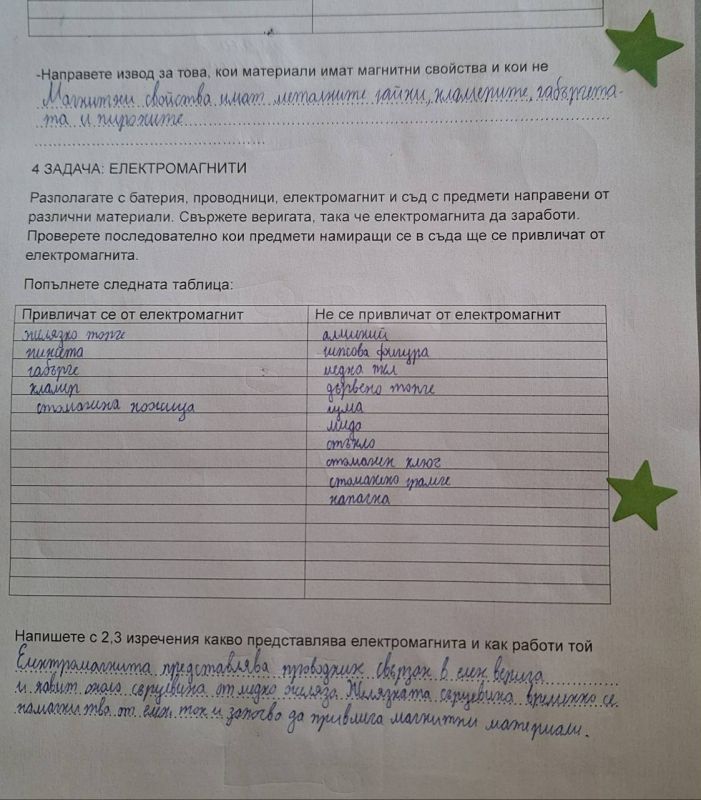 -Направете извод за това, кои материали имат магнитни свойства и кои не
Магнитни свойства имат металните гайки, кламерите, габърчета-
та и пироните
4 ЗАДАЧА: ЕЛЕКТРОМАГНИТИ
Разполагате с батерия, проводници, електромагнит и съд с предмети направени от
различни материали. Свържете веригата, така че електромагнита да заработи.
Проверете последователно кои предмети намиращи се в съда ще се привличат от
електромагнита.
Попълнете следната таблица:
Привличат се от електромагнит
Не се привличат от електромагнит
желязко топче
алминий
пинсета
гипсова фигура
габърче
медна тел
кламер
дървено топче
стоманена ножица
гума
мида
стъкло
стоманен ключ
стоманено грамче
капачка
Напишете с 2,3 изречения какво представлява електромагнита и как работи той
Електромагнита представлява проводник свързан в елек верига
и навит около сърцевина от медко желязо. Желязката сърцевина временно се
намагнитва от елек. ток и започва да привлича магнитни материали.